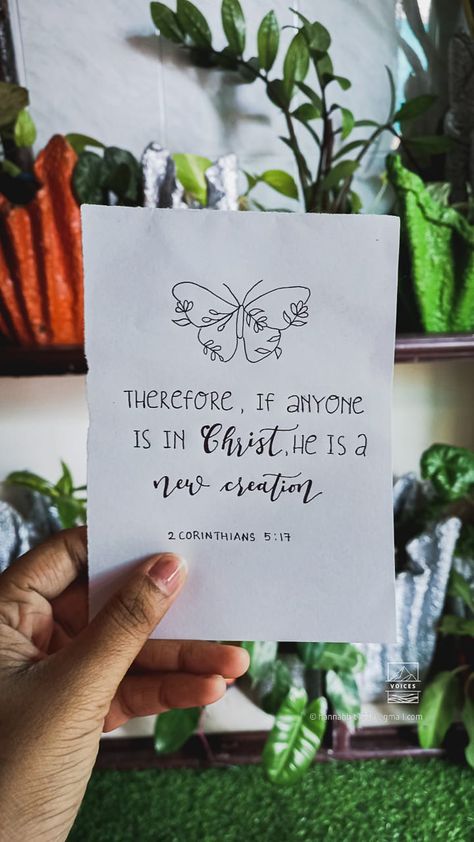 THEREFORE, IF ANYONE
IS IN Christ, HE IS A
new creation
2 CORINTHIANS 5:17
VOICES